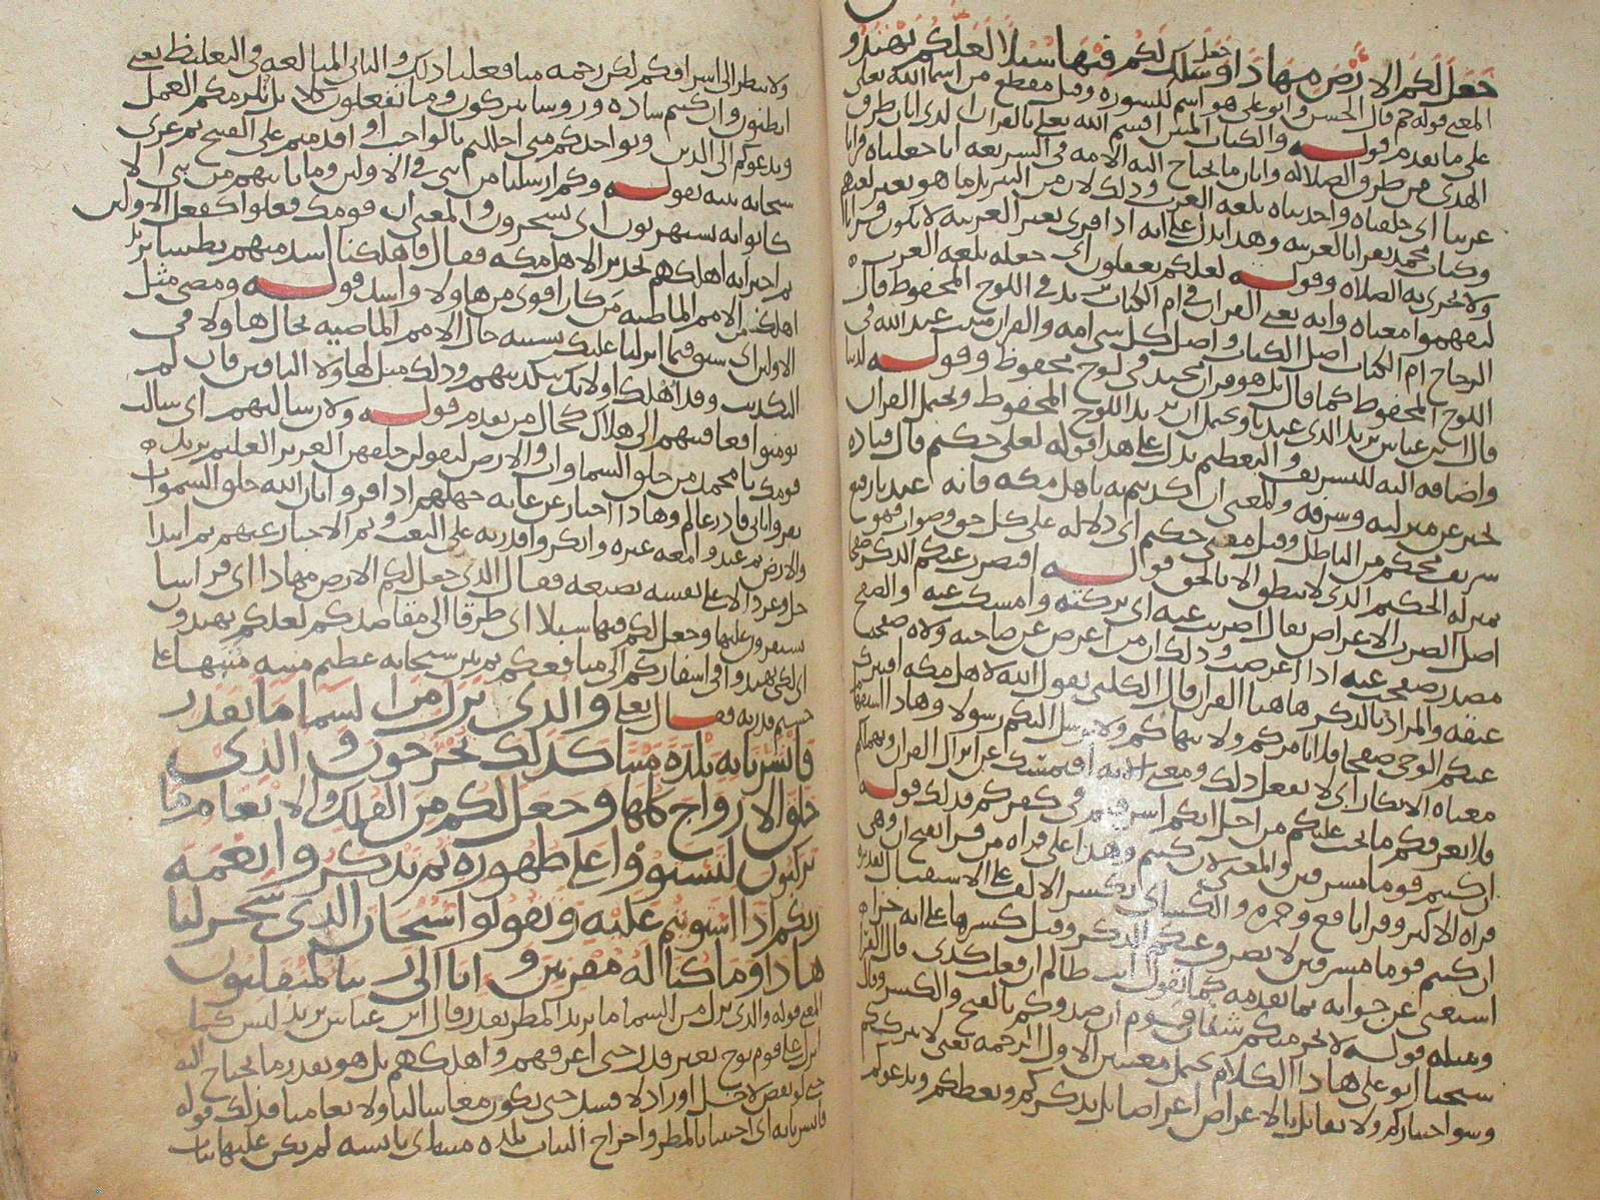 جعل لكم الارض مهادا وسلك جعل لكم فيها سبلا لعلكم تهتدو
المعنى قوله حم قال الحسن وابو علي هو اسم للسورة وقيل مقطع من اسما الله تعالى
على ما تقدم قوله والكتاب المبين اقسم الله تعالى بالقران الذي ابان طرق
الهدى من طرق الضلاله وابان ما يحتاج اليه الامه في الشريعه انا جعلناه قرانا
عربيا اي خلقناه واحدثناه بلغه العرب وذلك لان من التنزيل ما هو بغير لغتهم
وكتاب محمد يقرا بالعربيه وهذا يدل على انه اذا قرى بغير العربيه لا يكون قرانا
ولا تجزى به الصلاه وقوله لعلكم تعقلون اي جعله بلغه العرب
ليفهموا معناه وانه يعني القران في ام الكتاب يريد في اللوح المحفوظ قال
الزجاج ام الكتاب اصل الكتاب واصل كل شي امه والقران مثبت عند الله في
اللوح المحفوظ كما قال بل هو قران مجيد في لوح محفوظ وقوله لدينا
قال ابن عباس يريد الذي عندنا ويحتمل ان يريد اللوح المحفوظ ويحتمل القران
واضافه اليه للتشريف والتعظيم يدل على هذا قوله لعلي حكيم قال قتاده
يخبر عن منزلته وشرفه والمعنى ان كذبتم به يا اهل مكه فانه عندنا رفيع
شريف محكم من الباطل وقيل معنى حكيم اي دلاله على كل حق وصواب فهو
بمنزله الحكيم الذي لا ينطق الا بالحق قوله افنضرب عنكم الذكر صفحا
اصل الضرب الاعراض يقال اضربت عنه اي تركته وامسكت عنه والصفح
مصدر صفحت عنه اذا اعرضت وذلك ان من اعرض عن صاحبه ولاه صفحه
عنقه والمراد بالذكر هاهنا القران قال الكلبي يقول الله لاهل مكه افنترك
عنكم الوحي صفحا فلا نامركم ولا ننهاكم ولا نرسل اليكم رسولا وهاذا استفهام
معناه الانكار اي لا نفعل ذلك ومعنى الايه افنمسك عن انزال القران ونهملكم
فلا نعرفكم ما يجب عليكم من اجل انكم اسرفتم في كفركم فذلك قوله
ان كنتم قوما مسرفين والمعنى لان كنتم وهذا على قراه من قرا بفتح ان وهي
قراه الاكثر وقرا نافع وحمزه والكسائي بكسر الالف على الاستقبال
ان كنتم قوما مسرفين لا نضرب عنكم الذكر وقيل كسرها على انه جزاء
استغنى عن جوابه بما تقدمه كما تقول انت ظالم ان فعلت كذى قال الفرا
ومثله قوله لا يجرمنكم شنئان قوم ان صدوكم بالفتح والكسر وقال
شيخنا ابو علي هاذا الكلام يحتمل معنيين الاول الرحمه يعني لا نترككم
وسوا اختياركم ولا نقابل بالاعراض اعراضا بل نذكركم ونعظكم وندعوكم
ولا ننظر الى اسرافكم لكن رحمه منا فعلنا ذلك والثاني المبالغه في التغليظ يعني
اتظنون وان كنتم ساده وروسا تتركون وما تفعلون كلا بل نلزمكم العمل
وندعوكم الى الدين ونواخذكم متى اخللتم بالواجب او اقدمتم على القبيح ثم عزى
سبحانه نبيه بقوله وكم ارسلنا من نبي في الاولين وما ياتيهم من نبي الا
كانوا به يستهزئون اي يسخرون والمعنى ان قومك فعلوا كفعل الاولين
ثم اخبر انه اهلكهم تحذيرا لاهل مكه فقال فاهلكنا اشد منهم بطشا يريد
اهلكت من الامم الماضيه من كان اقوى من هاولا واشد قوله ومضى مثل
الاولين اي سبق فيما انزلنا عليك تشبيه حال الامم الماضيه بحال هاولا في
التكذيب وقد اهلك اولائك بتكذيبهم وذلك مثل لهاولا الباقين فان لم
يومنوا فعاقبتهم الى هلاك كحال من تقدم قوله ولان سالتهم اي سالت
قومك يا محمد من خلق السماوات والارض ليقولن خلقهن العزيز العليم يريد
يقروا باني قادر عالم وهاذا اخبار عن غايه جهلهم اذ اقروا بان الله خلق السموات
والارض ثم عبدوا معه غيره وانكروا قدرته على البعث وتم الاخبار عنهم ثم ابتدا
جل وعز دالا على نفسه بصنعه فقال الذي جعل لكم الارض مهادا اي فراشا
تستقرون عليها وجعل لكم فيها سبلا اي طرقا الى مقاصدكم لعلكم تهتدو
اي لكي تهتدوا في اسفاركم الى منافعكم ثم بين سبحانه عظيم منته منبها على
جسيم قدرته فقال تعلى والذي نزل من السما ما بقدر
فانشرنا به بلدة ميتا كذلك تخرجون والذي
خلق الازواج كلها وجعل لكم من الفلك والانعام ما
تركبون لتستووا على ظهوره ثم تذكروا نعمة
ربكم اذا استويتم عليه وتقولوا سبحان الذي سخر لنا
هاذا وما كنا له مقرنين وانا الى ربنا لمنقلبون
المعنى قوله والذي نزل من السما ما يريد المطر بقدر قال ابن عباس يريد ليس كما
انزل على قوم نوح بغير قدر حتى اغرقهم واهلكهم بل هو بقدر ما يحتاج اليه
حتى لو نقص لاخل او زاد لافسد حتى يكون معاشا لنا ولانعامنا فذلك قوله
فانشرنا به اي احيينا بالمطر واخراج النبات بلده ميتا اي يابسه لم يكن عليها نبات